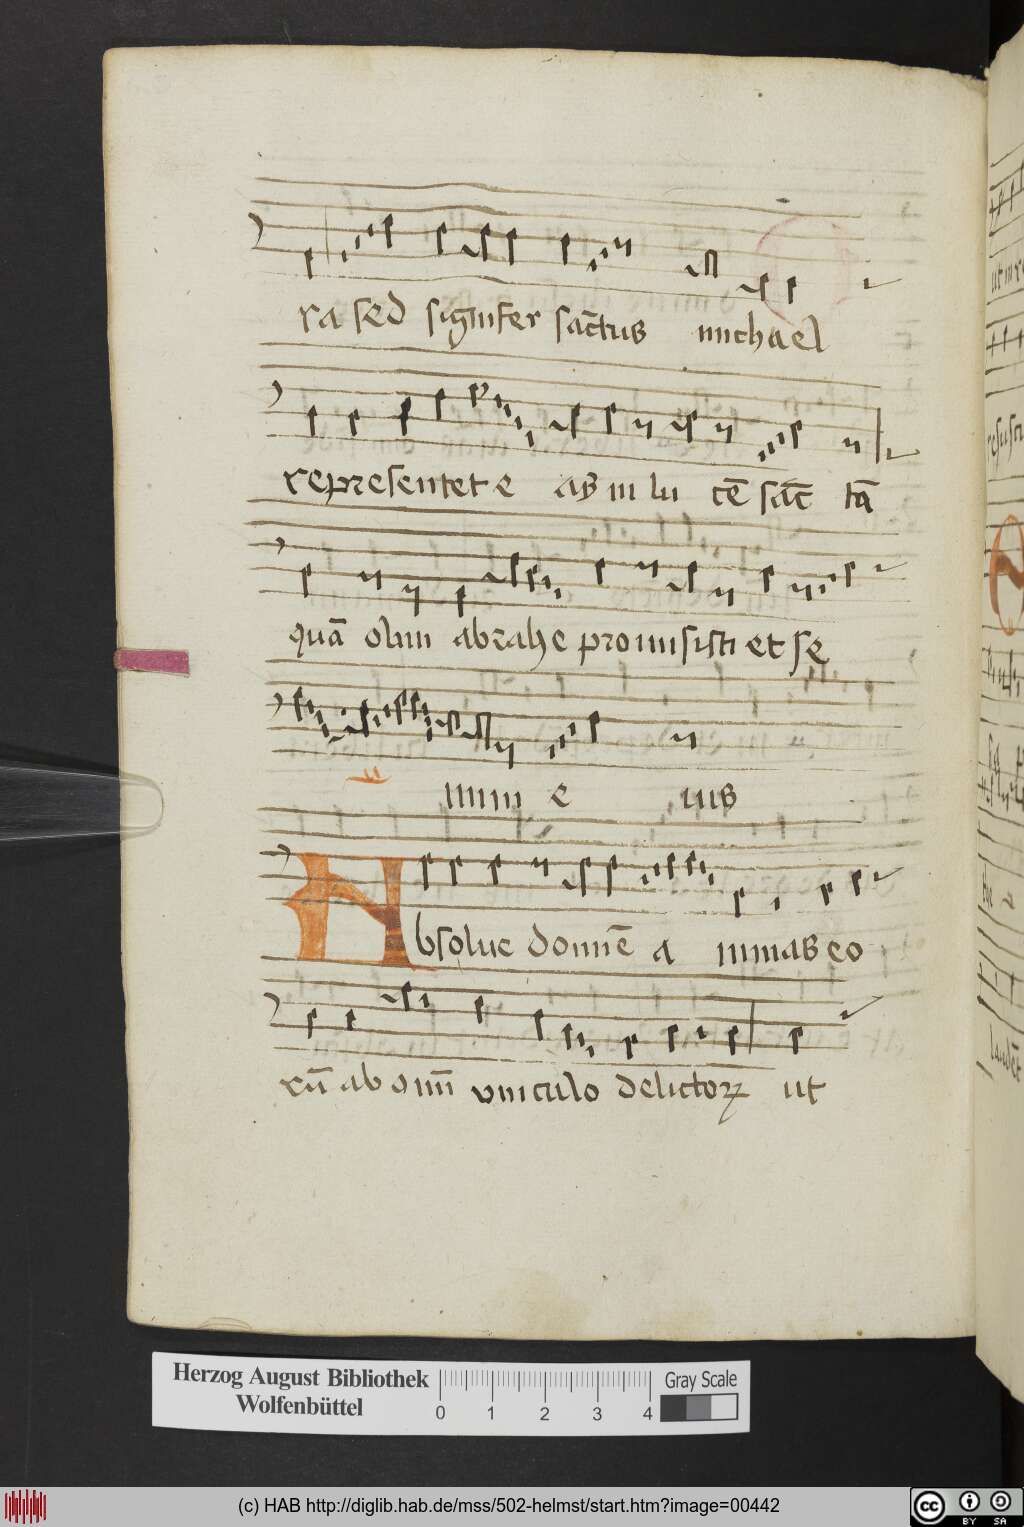 ra sed signifer sāctus michael
representet e as in lu cē sāc tā
quā olim abrahe promisisti et se
mini e ius
Absolue domine a nimas eo
rū ab omī vinculo delictoꝝ ut
Herzog August Bibliothek
Wolfenbüttel
0 1 2 3 4
Gray Scale
(c) HAB http://diglib.hab.de/mss/502-helmst/start.htm?image=00442
cc BY SA